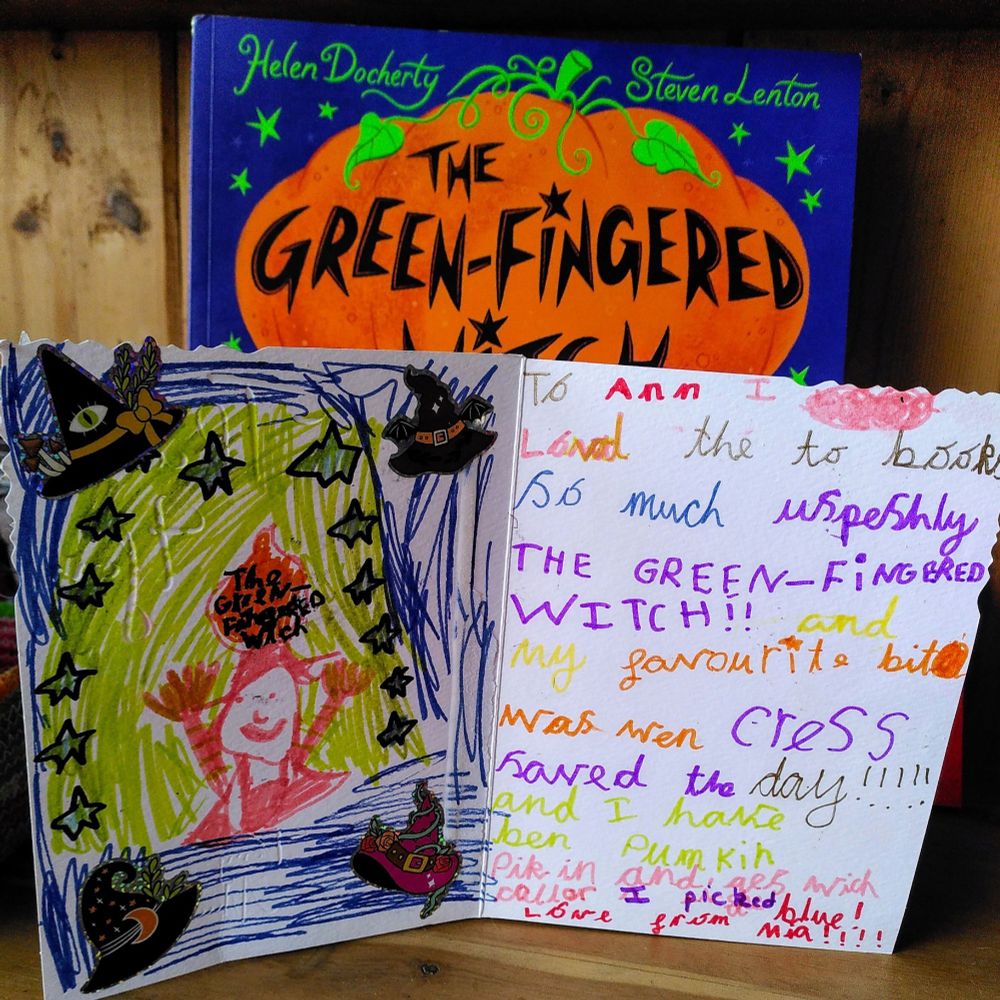 Helen Docherty
Steven Lenton
THE
GREEN-FINGERED
WITCH
The
GREEN-
FINGERED
Witch
To Ann I
Loved the to books
so much uspeshly
THE GREEN-FiNGERED
WITCH!! and
my favourite bit
was wen cress
saved the day!!!!!
and I have
ben Pumkin
Pik-in and ges wich
collor I picked blue!
Love from Mia!!!!